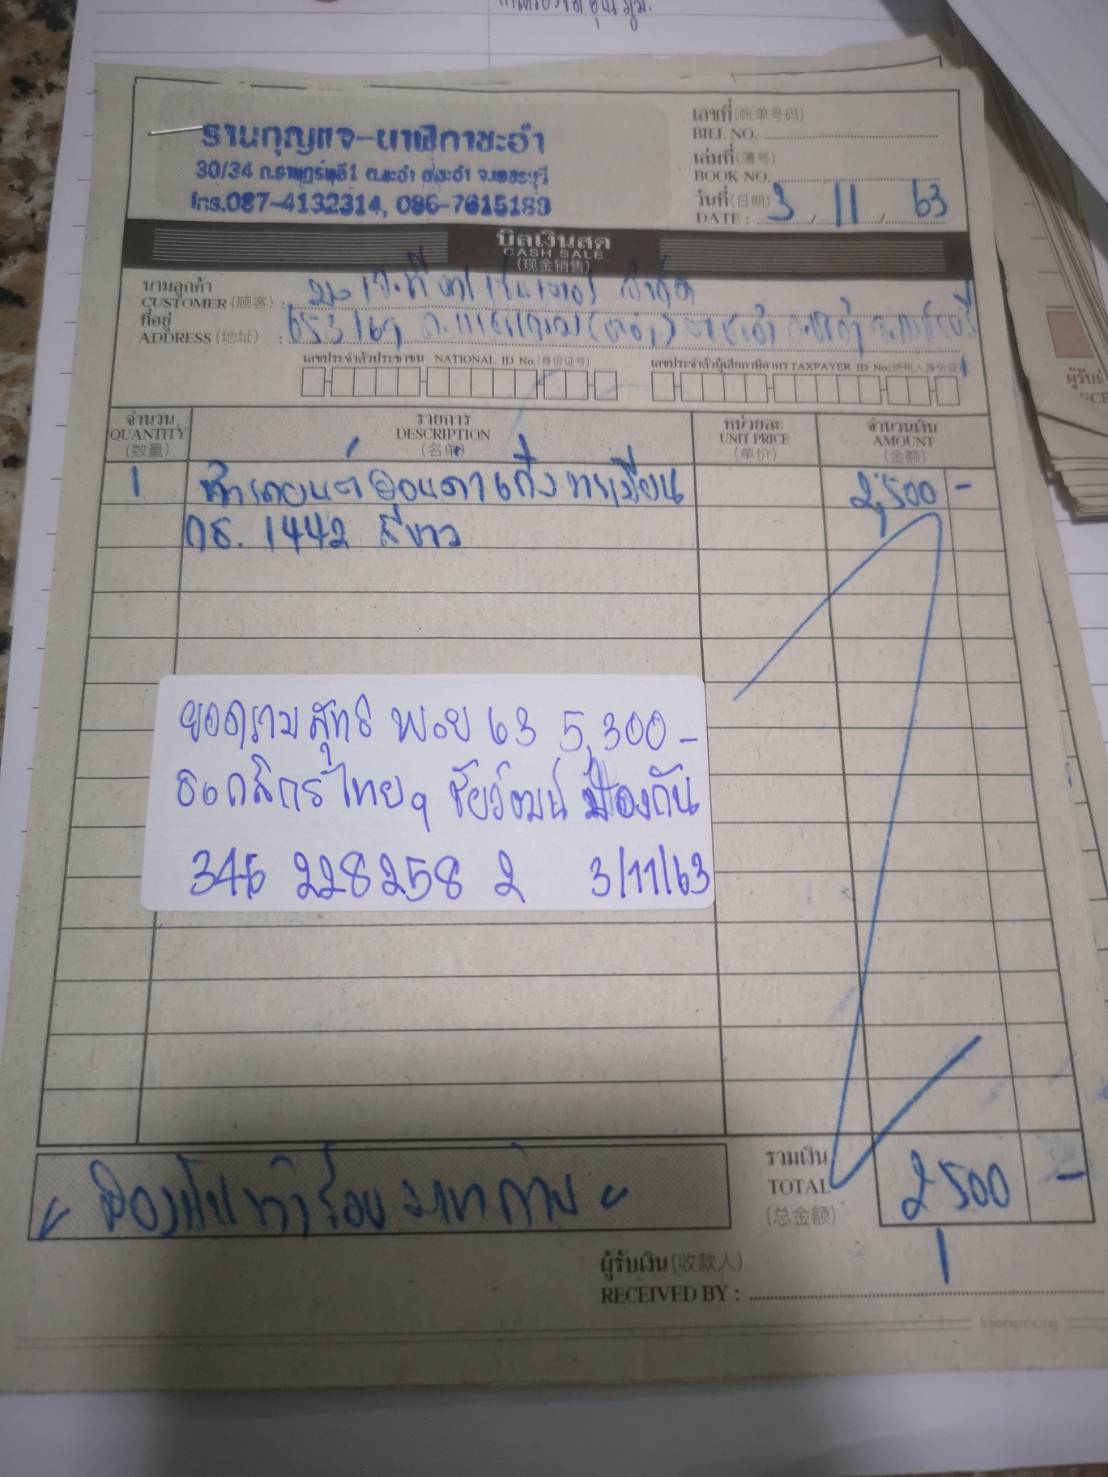 ร้านกุญแจ-นาฬิกาชะอำ
30/34 ต.ชะอำ อ.ชะอำ จ.เพชรบุรี
โทร.087-4132314, 086-7615183
เลขที่(帐单号码)
BILL NO.
เล่มที่(簿号)
BOOK NO.
วันที่(日期)
DATE : 3 / 11 / 63
บิลเงินสด
CASH SALE
(现金销售)
นามลูกค้า
CUSTOMER (顾客) : จำกัด
ที่อยู่
ADDRESS (地址) : 653/69
เลขประจำตัวประชาชน NATIONAL ID No.(身份证号)
เลขประจำตัวผู้เสียภาษีอากร TAXPAYER ID No.(纳税人身份证)
จำนวน รายการ หน่วยละ จำนวนเงิน
QUANTITY DESCRIPTION UNIT PRICE AMOUNT
(数量) (名单) (单价) (金额)
1 รถยนต์ ฮอนด้า เก๋ง ทะเบียน 2,500 -
กธ. 1442 สีขาว
ยอดรวมสุทธิ พ.ย 63 5,300 -
ธ.กสิกรไทย ชัยวัฒน์ ป้องกัน
345 228258 2 3/11/63
รวมเงิน
TOTAL 2500 -
(总金额)
ผู้รับเงิน(收款人)
RECEIVED BY :